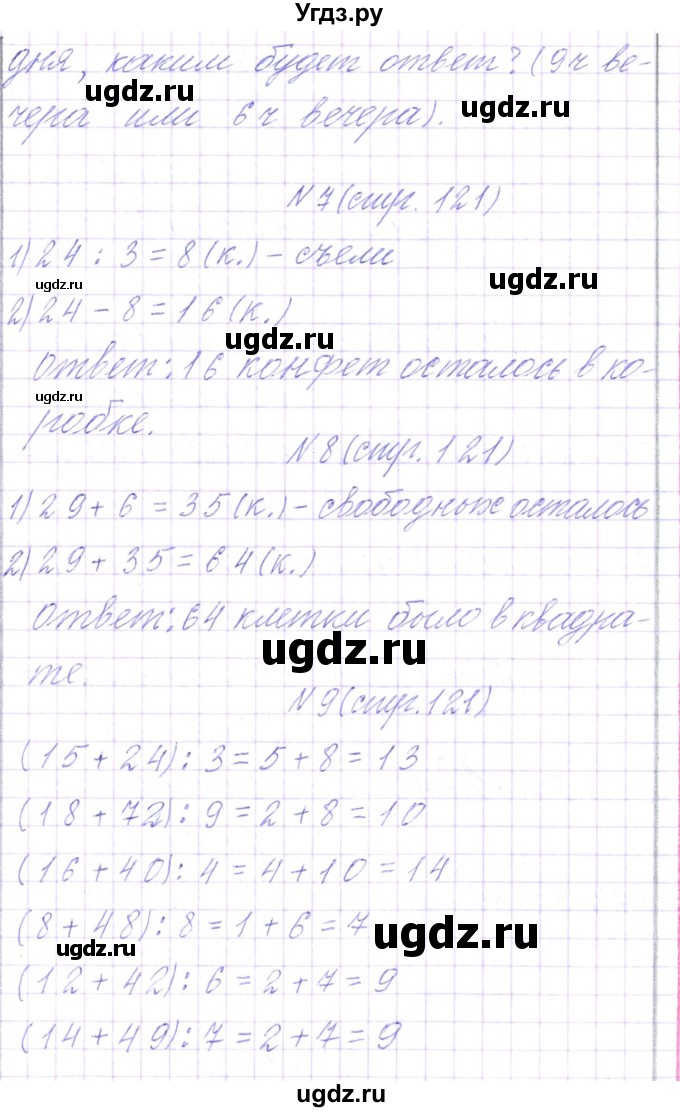 Угдз.ру
дня, каким будет ответ? (9ч ве-
ugdz.ru
ugdz.ru
чера или 6ч вечера).
N7(стр. 121)
1) 24 : 3 = 8 (к.) – съели
ugdz.ru
ugdz.ru
2) 24 – 8 = 16 (к.)
ugdz.ru
Ответ: 16 конфет осталось в ко-
ugdz.ru
робке.
N8(стр. 121)
1) 29 + 6 = 35 (к.) – свободных осталось
2) 29 + 35 = 64 (к.)
Ответ: 64 клетки было в квадра-
ugdz.ru
те.
N9(стр. 121)
(15 + 24) : 3 = 5 + 8 = 13
(18 + 72) : 9 = 2 + 8 = 10
(16 + 40) : 4 = 4 + 10 = 14
(8 + 48) : 8 = 1 + 6 = 7
ugdz.ru
ugdz.ru
(12 + 42) : 6 = 2 + 7 = 9
(14 + 49) : 7 = 2 + 7 = 9
ugdz.ru